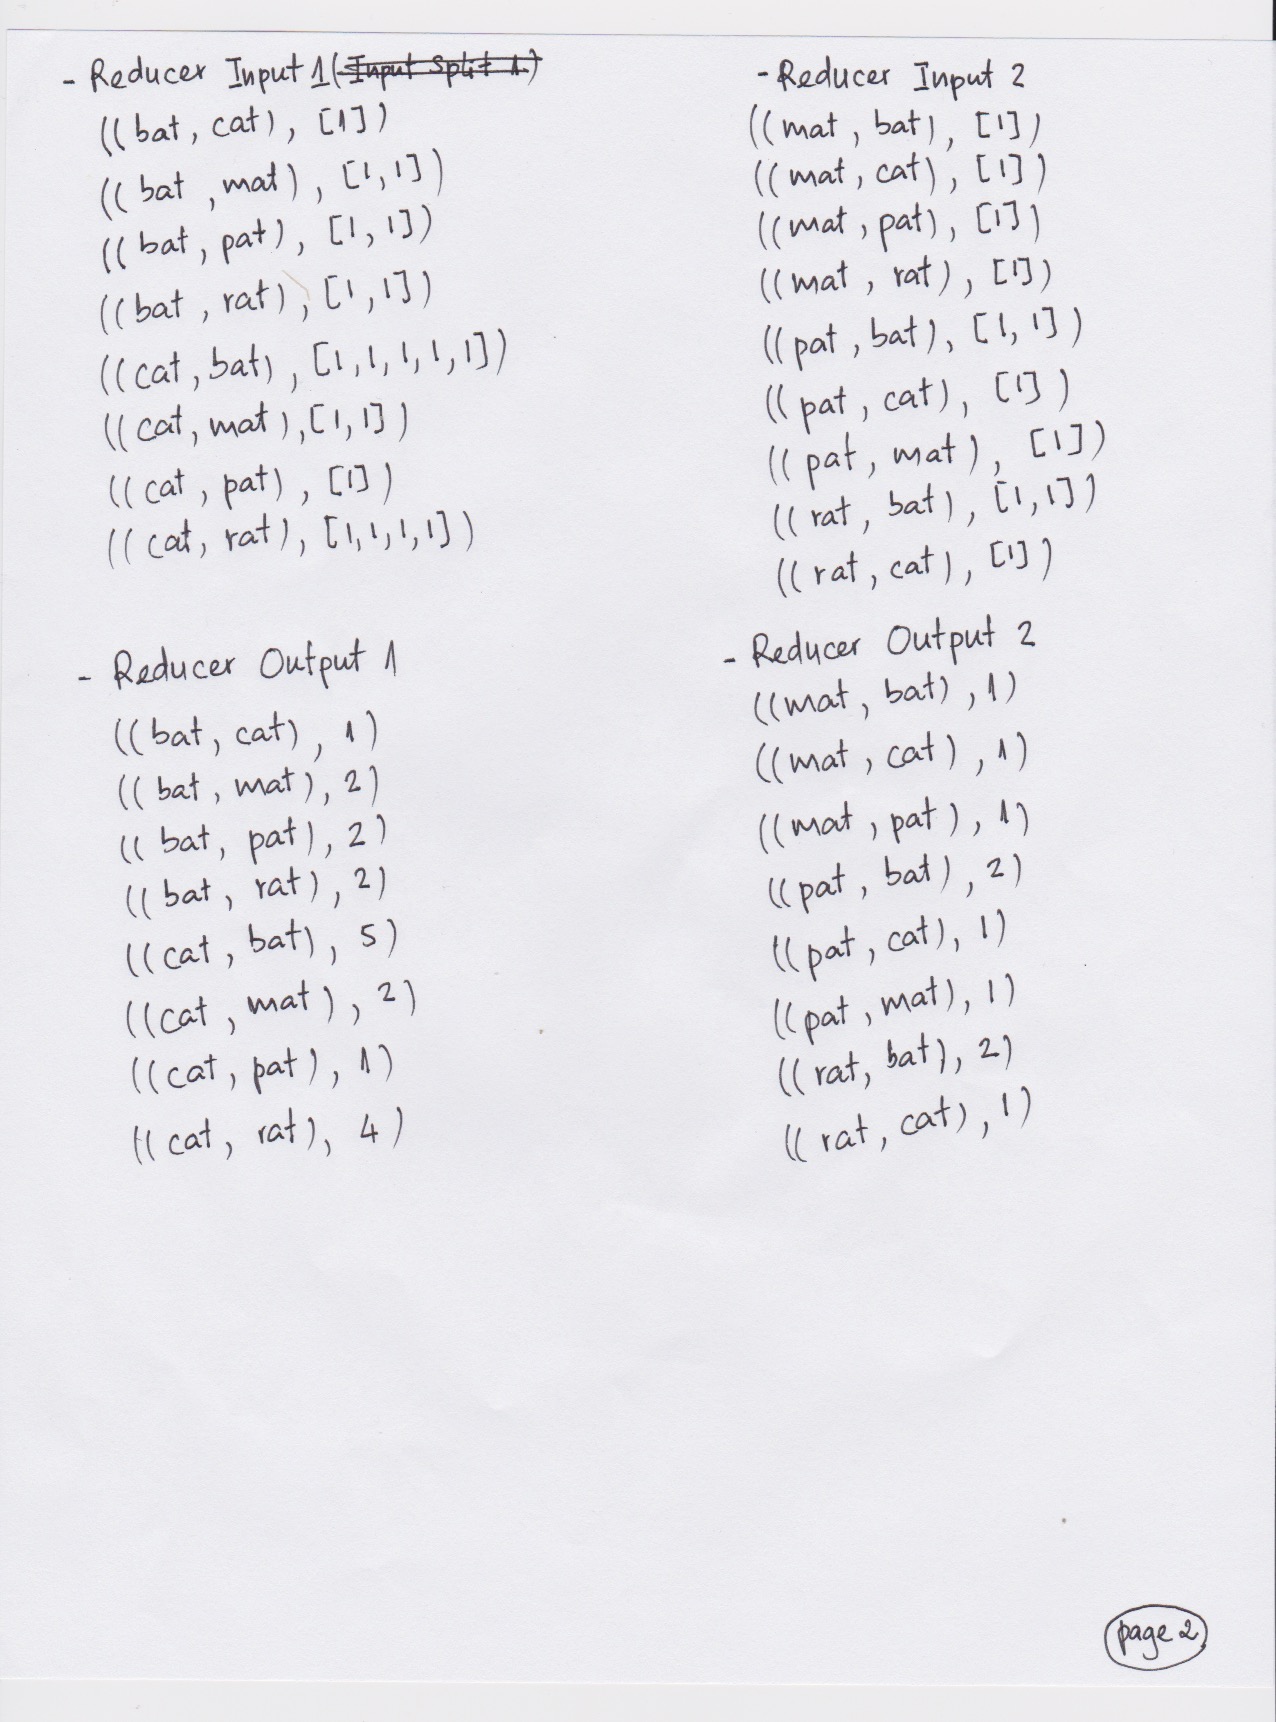 - Reducer Input 1 (Input Split 1)
((bat, cat), [1])
((bat, mat), [1,1])
((bat, pat), [1,1])
((bat, rat), [1,1])
((cat, bat), [1,1,1,1,1])
((cat, mat), [1,1])
((cat, pat), [1])
((cat, rat), [1,1,1,1])
- Reducer Input 2
((mat, bat), [1])
((mat, cat), [1])
((mat, pat), [1])
((mat, rat), [1])
((pat, bat), [1,1])
((pat, cat), [1])
((pat, mat), [1])
((rat, bat), [1,1])
((rat, cat), [1])
- Reducer Output 1
((bat, cat), 1)
((bat, mat), 2)
((bat, pat), 2)
((bat, rat), 2)
((cat, bat), 5)
((cat, mat), 2)
((cat, pat), 1)
((cat, rat), 4)
- Reducer Output 2
((mat, bat), 1)
((mat, cat), 1)
((mat, pat), 1)
((pat, bat), 2)
((pat, cat), 1)
((pat, mat), 1)
((rat, bat), 2)
((rat, cat), 1)
page 2